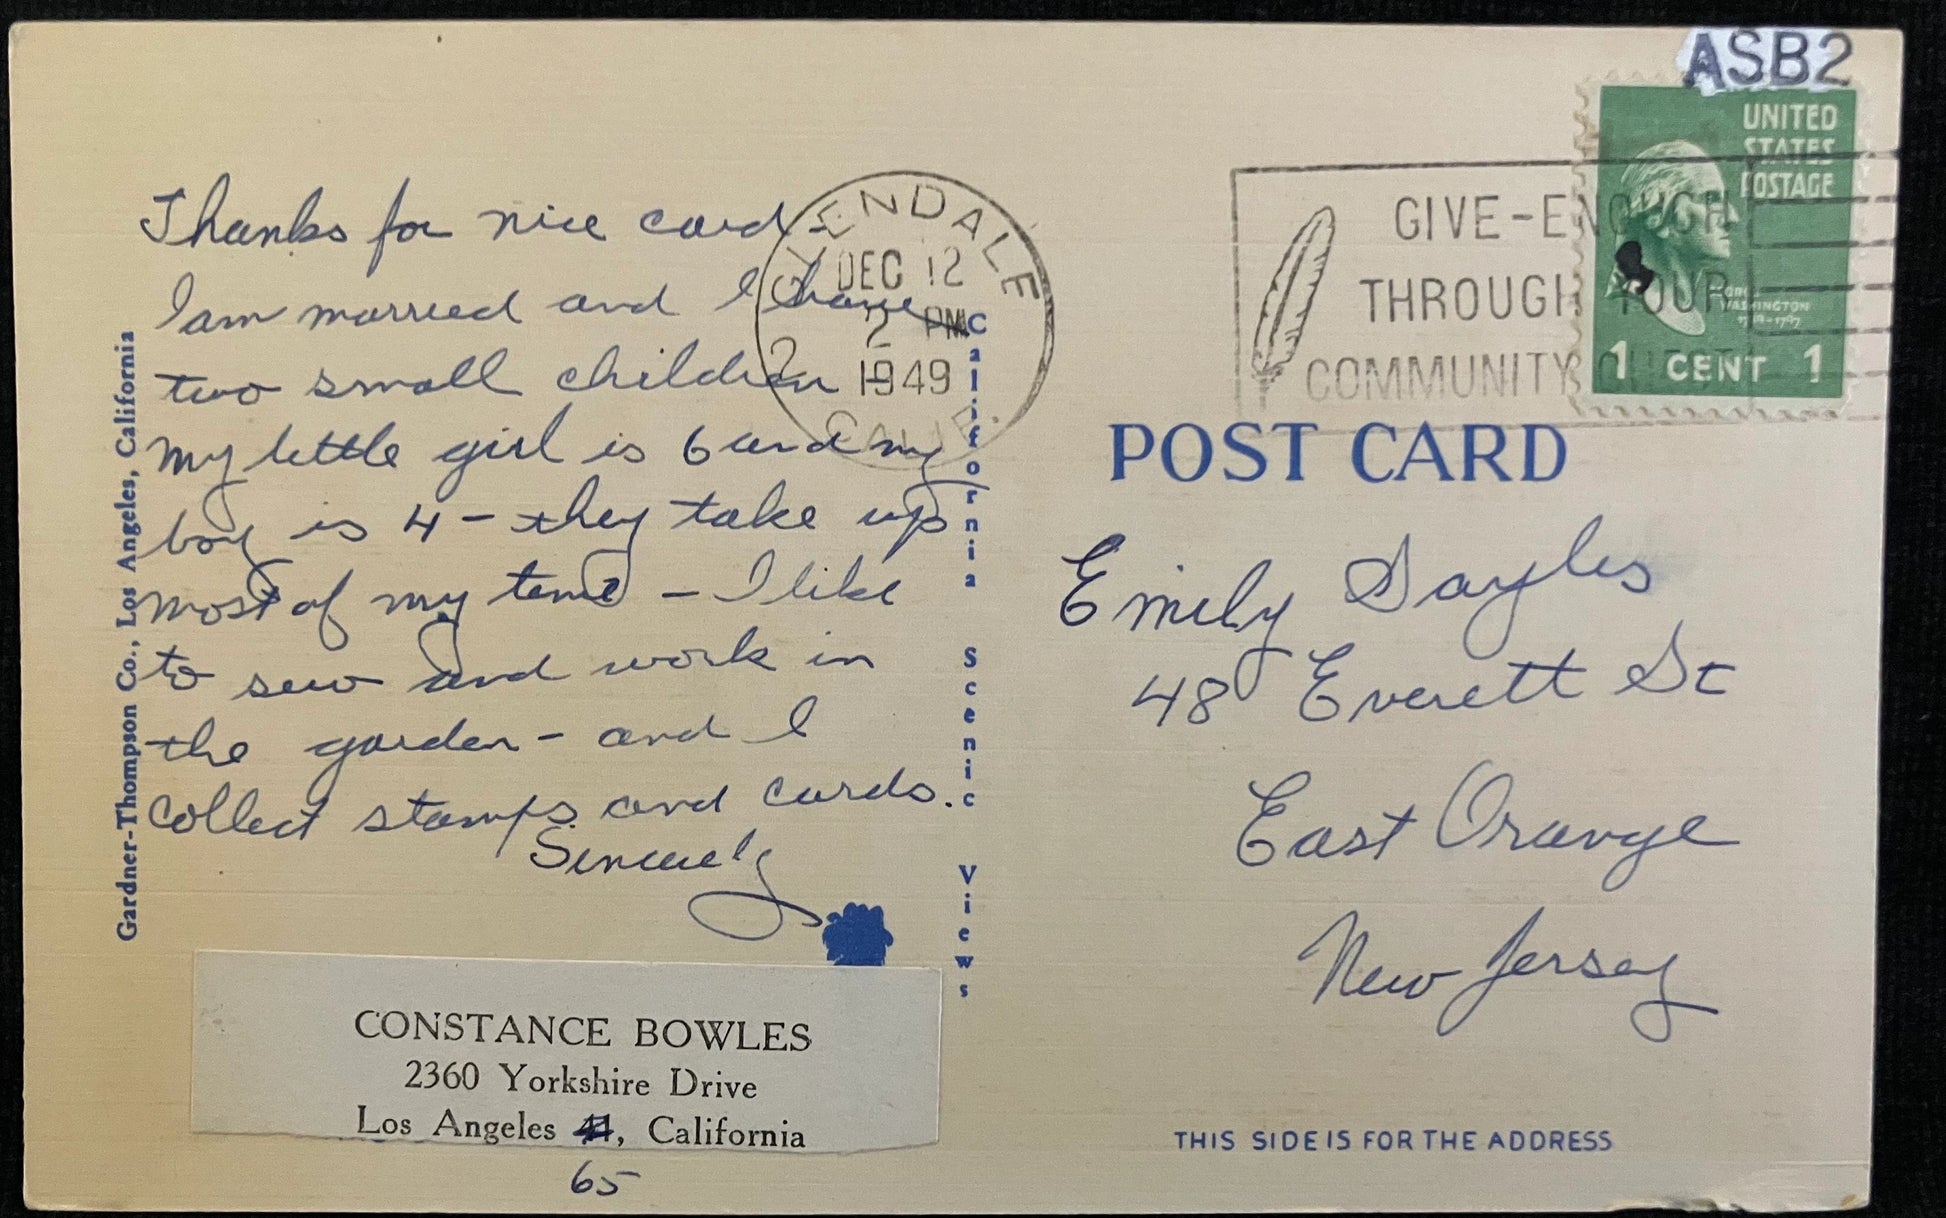 ASB2
UNITED
STATES
POSTAGE
GEORGE
WASHINGTON
1789-1797
1 CENT 1
GLENDALE
DEC 12
2 PM
1949
CALIF.
2
GIVE-ENOUGH
THROUGH YOUR
COMMUNITY CHEST
Thanks for nice card -
I am married and I have
two small children -
my little girl is 6 and my
boy is 4 - they take up
most of my time - I like
to sew and work in
the garden - and I
collect stamps and cards.
Sincerely
CONSTANCE BOWLES
2360 Yorkshire Drive
Los Angeles 41, California
65
Gardner-Thompson Co., Los Angeles, California
California Scenic Views
POST CARD
Emily Sayles
48 Everett St
East Orange
New Jersey
THIS SIDE IS FOR THE ADDRESS